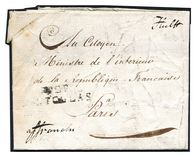 Au Citoyen
Ministre de l'interieur
de la République Francaise
a
Paris
affranchi